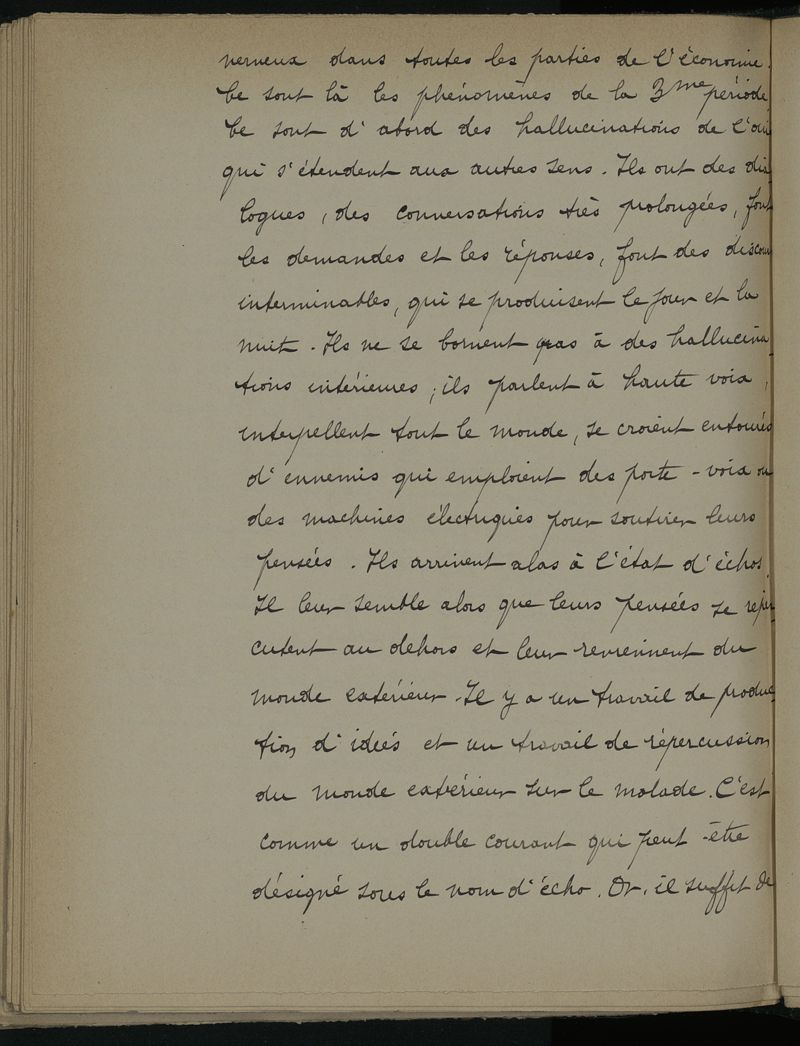 nerveux dans toutes les parties de l'économie.
Ce sont là les phénomènes de la 3me période.
Ce sont d'abord des hallucinations de l'ouï
qui s'étendent aux autres sens. Ils ont des dia
logues, des conversations très prolongées, font
les demandes et les réponses, font des discours
interminables, qui se produisent le jour et la
nuit. Ils ne se bornent pas à des hallucina
tions intérieures, ils parlent à haute voix,
interpellent tout le monde, se croient entourés
d'ennemis qui emploient des porte-voix ou
des machines électriques pour soutirer leurs
pensées. Ils arrivent alas à l'état d'échos.
Il leur semble alors que leurs pensées se réper
cutent au dehors et leur reviennent du
monde extérieur. Il y a un travail de produc
tion d'idées et un travail de répercussion
du monde extérieur sur le malade. C'est
comme un double courant qui peut-être
désigné sous le nom d'écho. Or, il suffit de